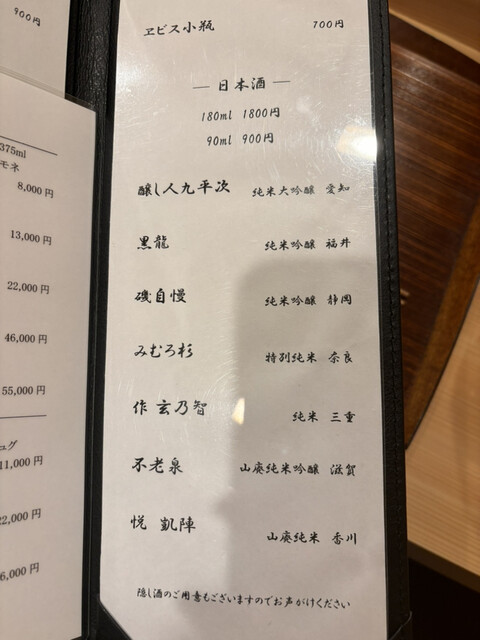 900円
375ml
モネ
8,000円
13,000円
22,000円
46,000円
55,000円
11,000円
22,000円
6,000円
ヱビス小瓶 700円
― 日本酒 ―
180ml 1800円
90ml 900円
醸し人九平次 純米大吟醸 愛知
黒龍 純米吟醸 福井
磯自慢 純米吟醸 静岡
みむろ杉 特別純米 奈良
作 玄乃智 純米 三重
不老泉 山廃純米吟醸 滋賀
悦 凱陣 山廃純米 香川
隠し酒のご用意もございますのでお声がけください